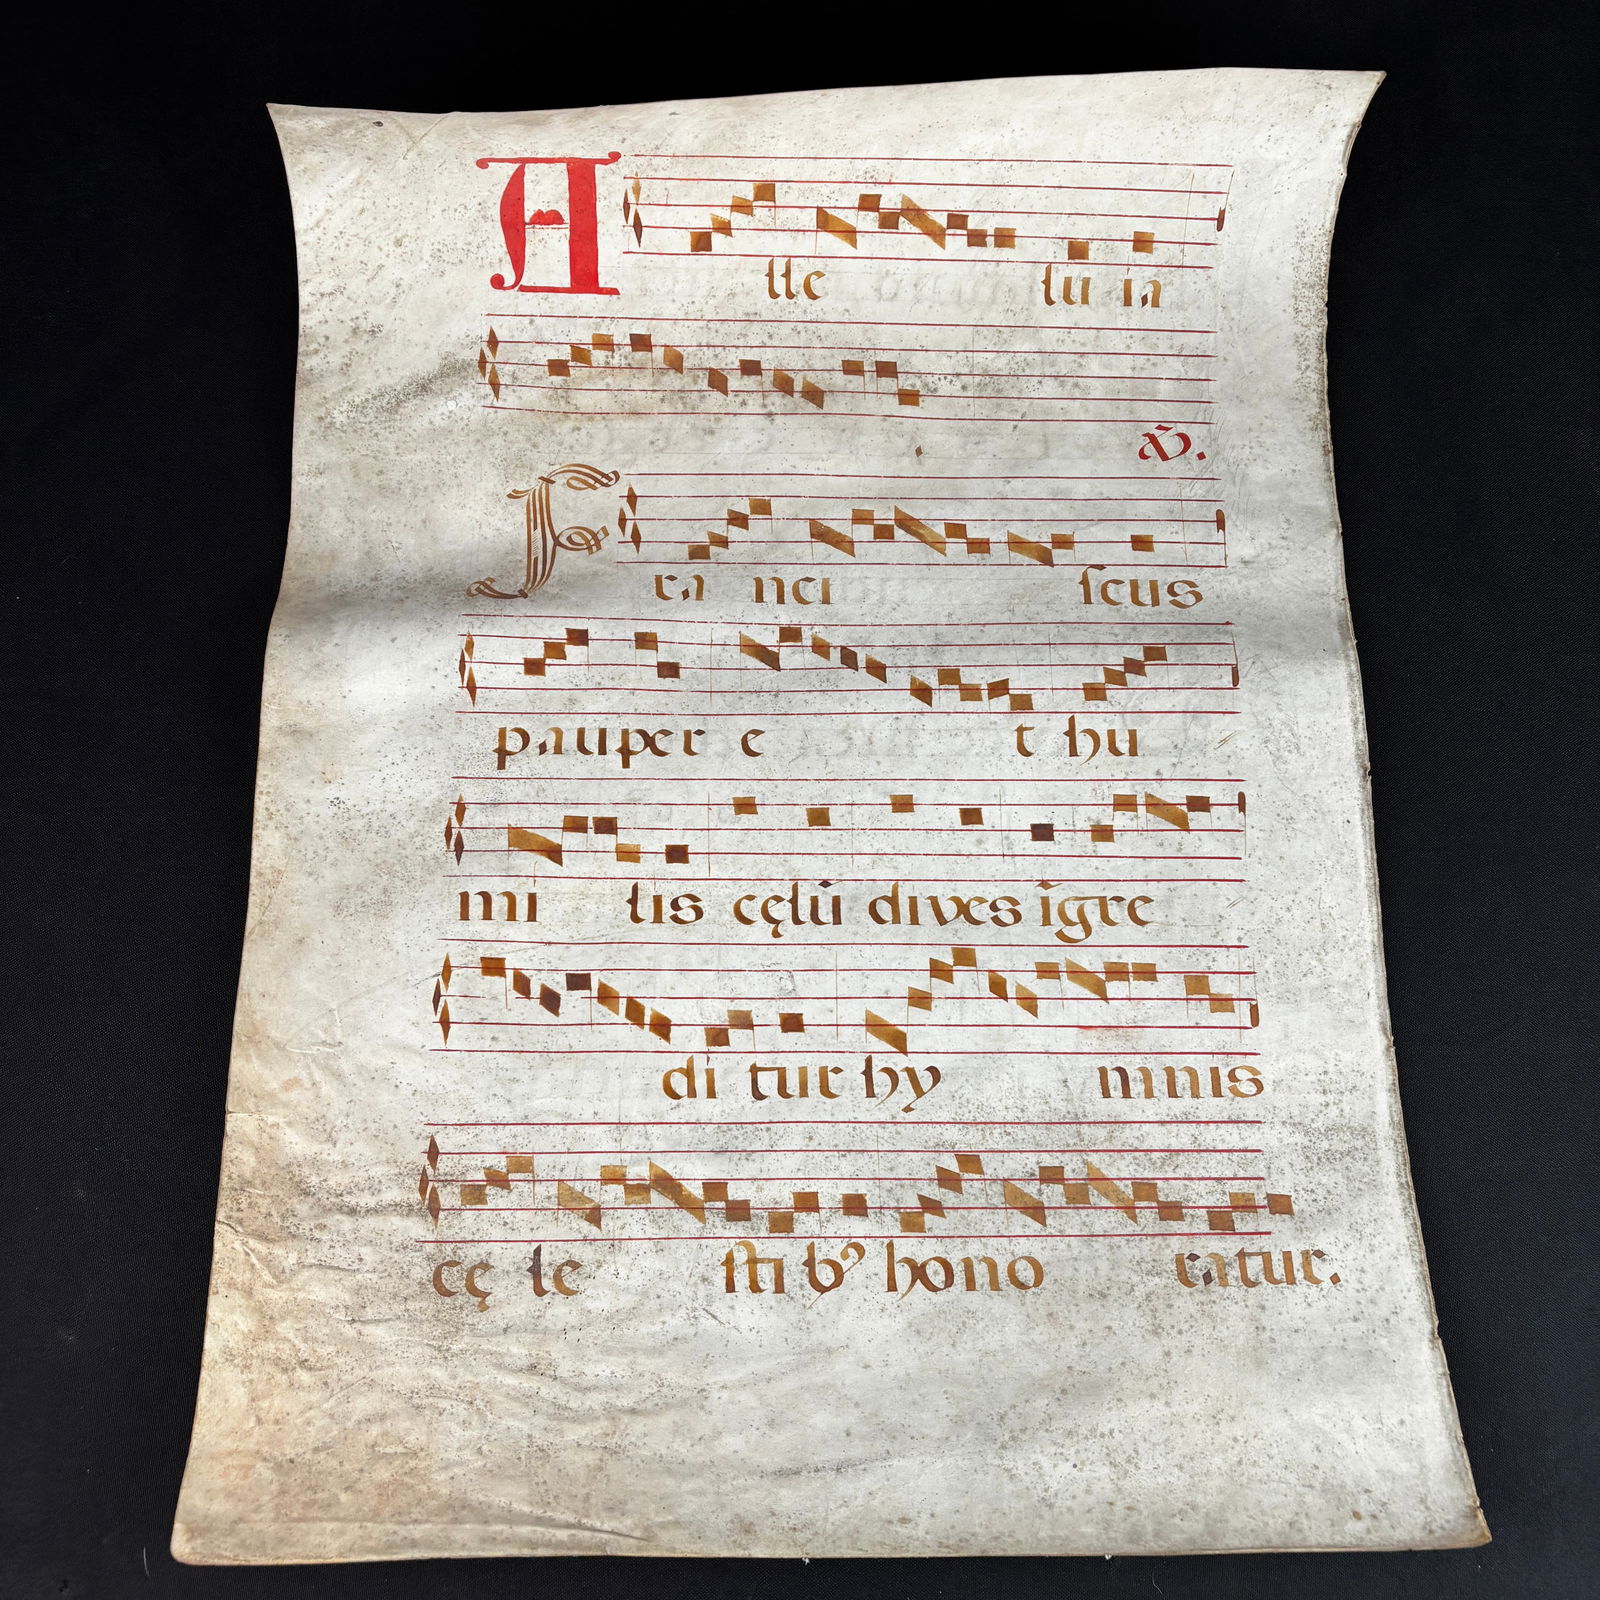 Alle lu ia
℣.
Fra nci scus
pauper e t hu
mi lis cęlū dives īgre
di tur hy mnis
cę le stib⁹ hono ratur.